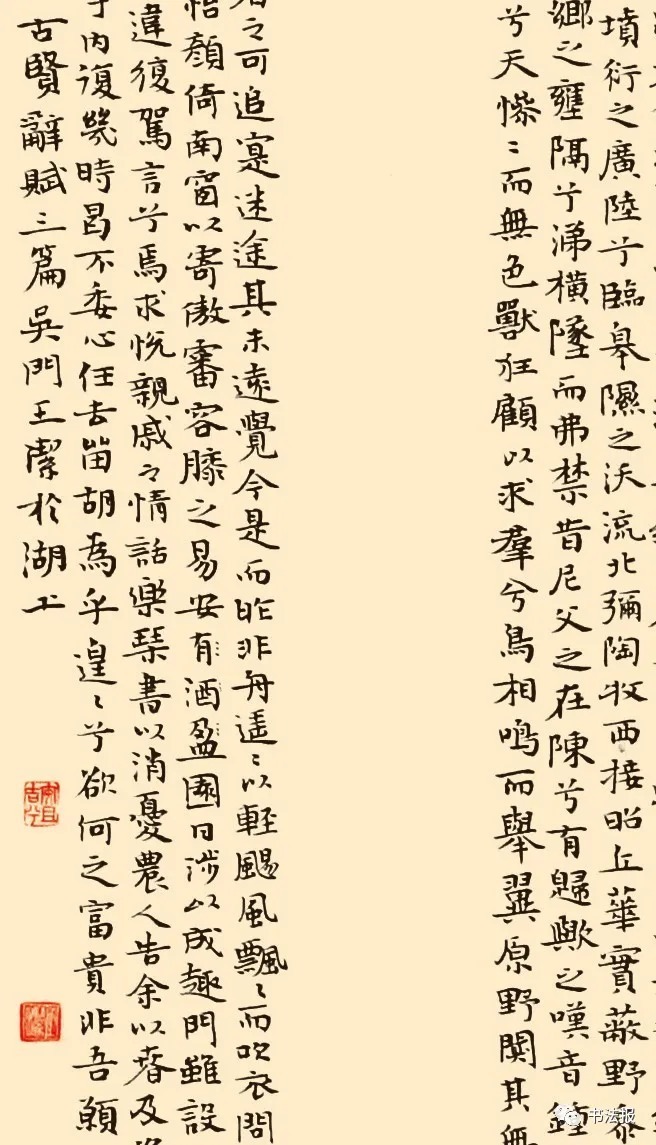 墳衍之廣陸兮臨皋隰之沃流北彌陶牧西接昭丘華實蔽野黍
鄉之壅隔兮涕橫墜而弗禁昔尼父之在陳兮有歸歟之嘆音鍾
兮天慘〻而無色獸狂顧以求羣兮鳥相鳴而舉翼原野闃其無
者之可追寔迷途其未遠覺今是而昨非舟遥〻以輕颺風飄〻而吹衣問
顏倚南窗以寄傲審容膝之易安有酒盈園日涉以成趣門雖設
違復駕言兮焉求悅親戚之情話樂琴書以消憂農人告余以春及
内復幾時曷不委心任去留胡為乎遑〻兮欲何之富貴非吾願
古賢辭賦三篇吳門王潔於湖上
安且吉兮
书法报